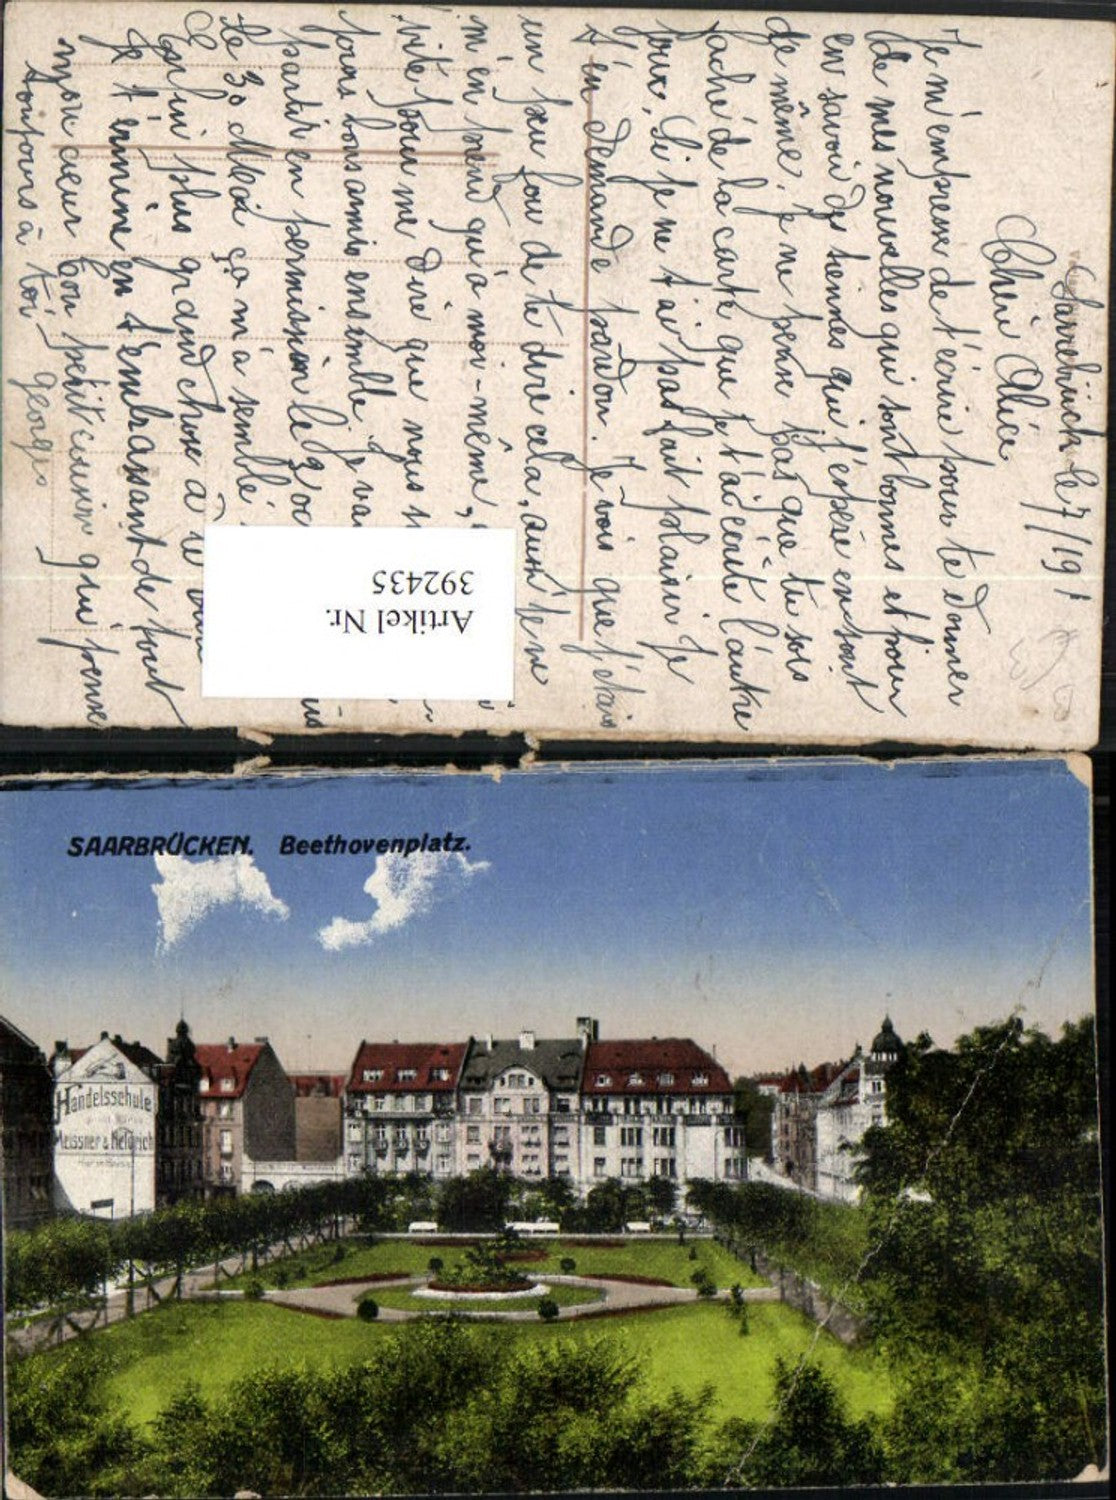 Sarrebrück le 7/19
Chère Alice
Je m'empresse de t'écrire pour te donner
de mes nouvelles qui sont bonnes et pour
en savoir des tiennes que j'espère en sont
de même. Je ne pense pas que tu sois
faché de la carte que je t'ai écrite l'autre
jour, Si je ne t'ai pas fait plaisir Je
t'en demande pardon. Je vois que j'étais
un peu fou de te dire cela, aussi je ne
m'en prend qu'à moi-même,
vite pour me dire que nous
jours bons amis ensemble. Je
partir en permission le
le 30 Mai ça m'a semblé
Enfin plus grand chose à te
Je termine en t'embrassant de tout
mon cœur ton petit cousin qui pense
toujours à toi Georges
Artikel Nr.
392435
SAARBRÜCKEN. Beethovenplatz.
Handelsschule
Meissner &